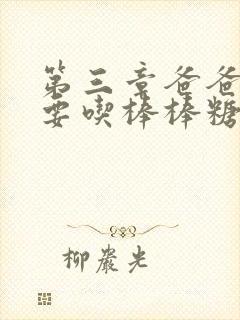 第三章爸爸
要喫棒棒糖
柳嚴光